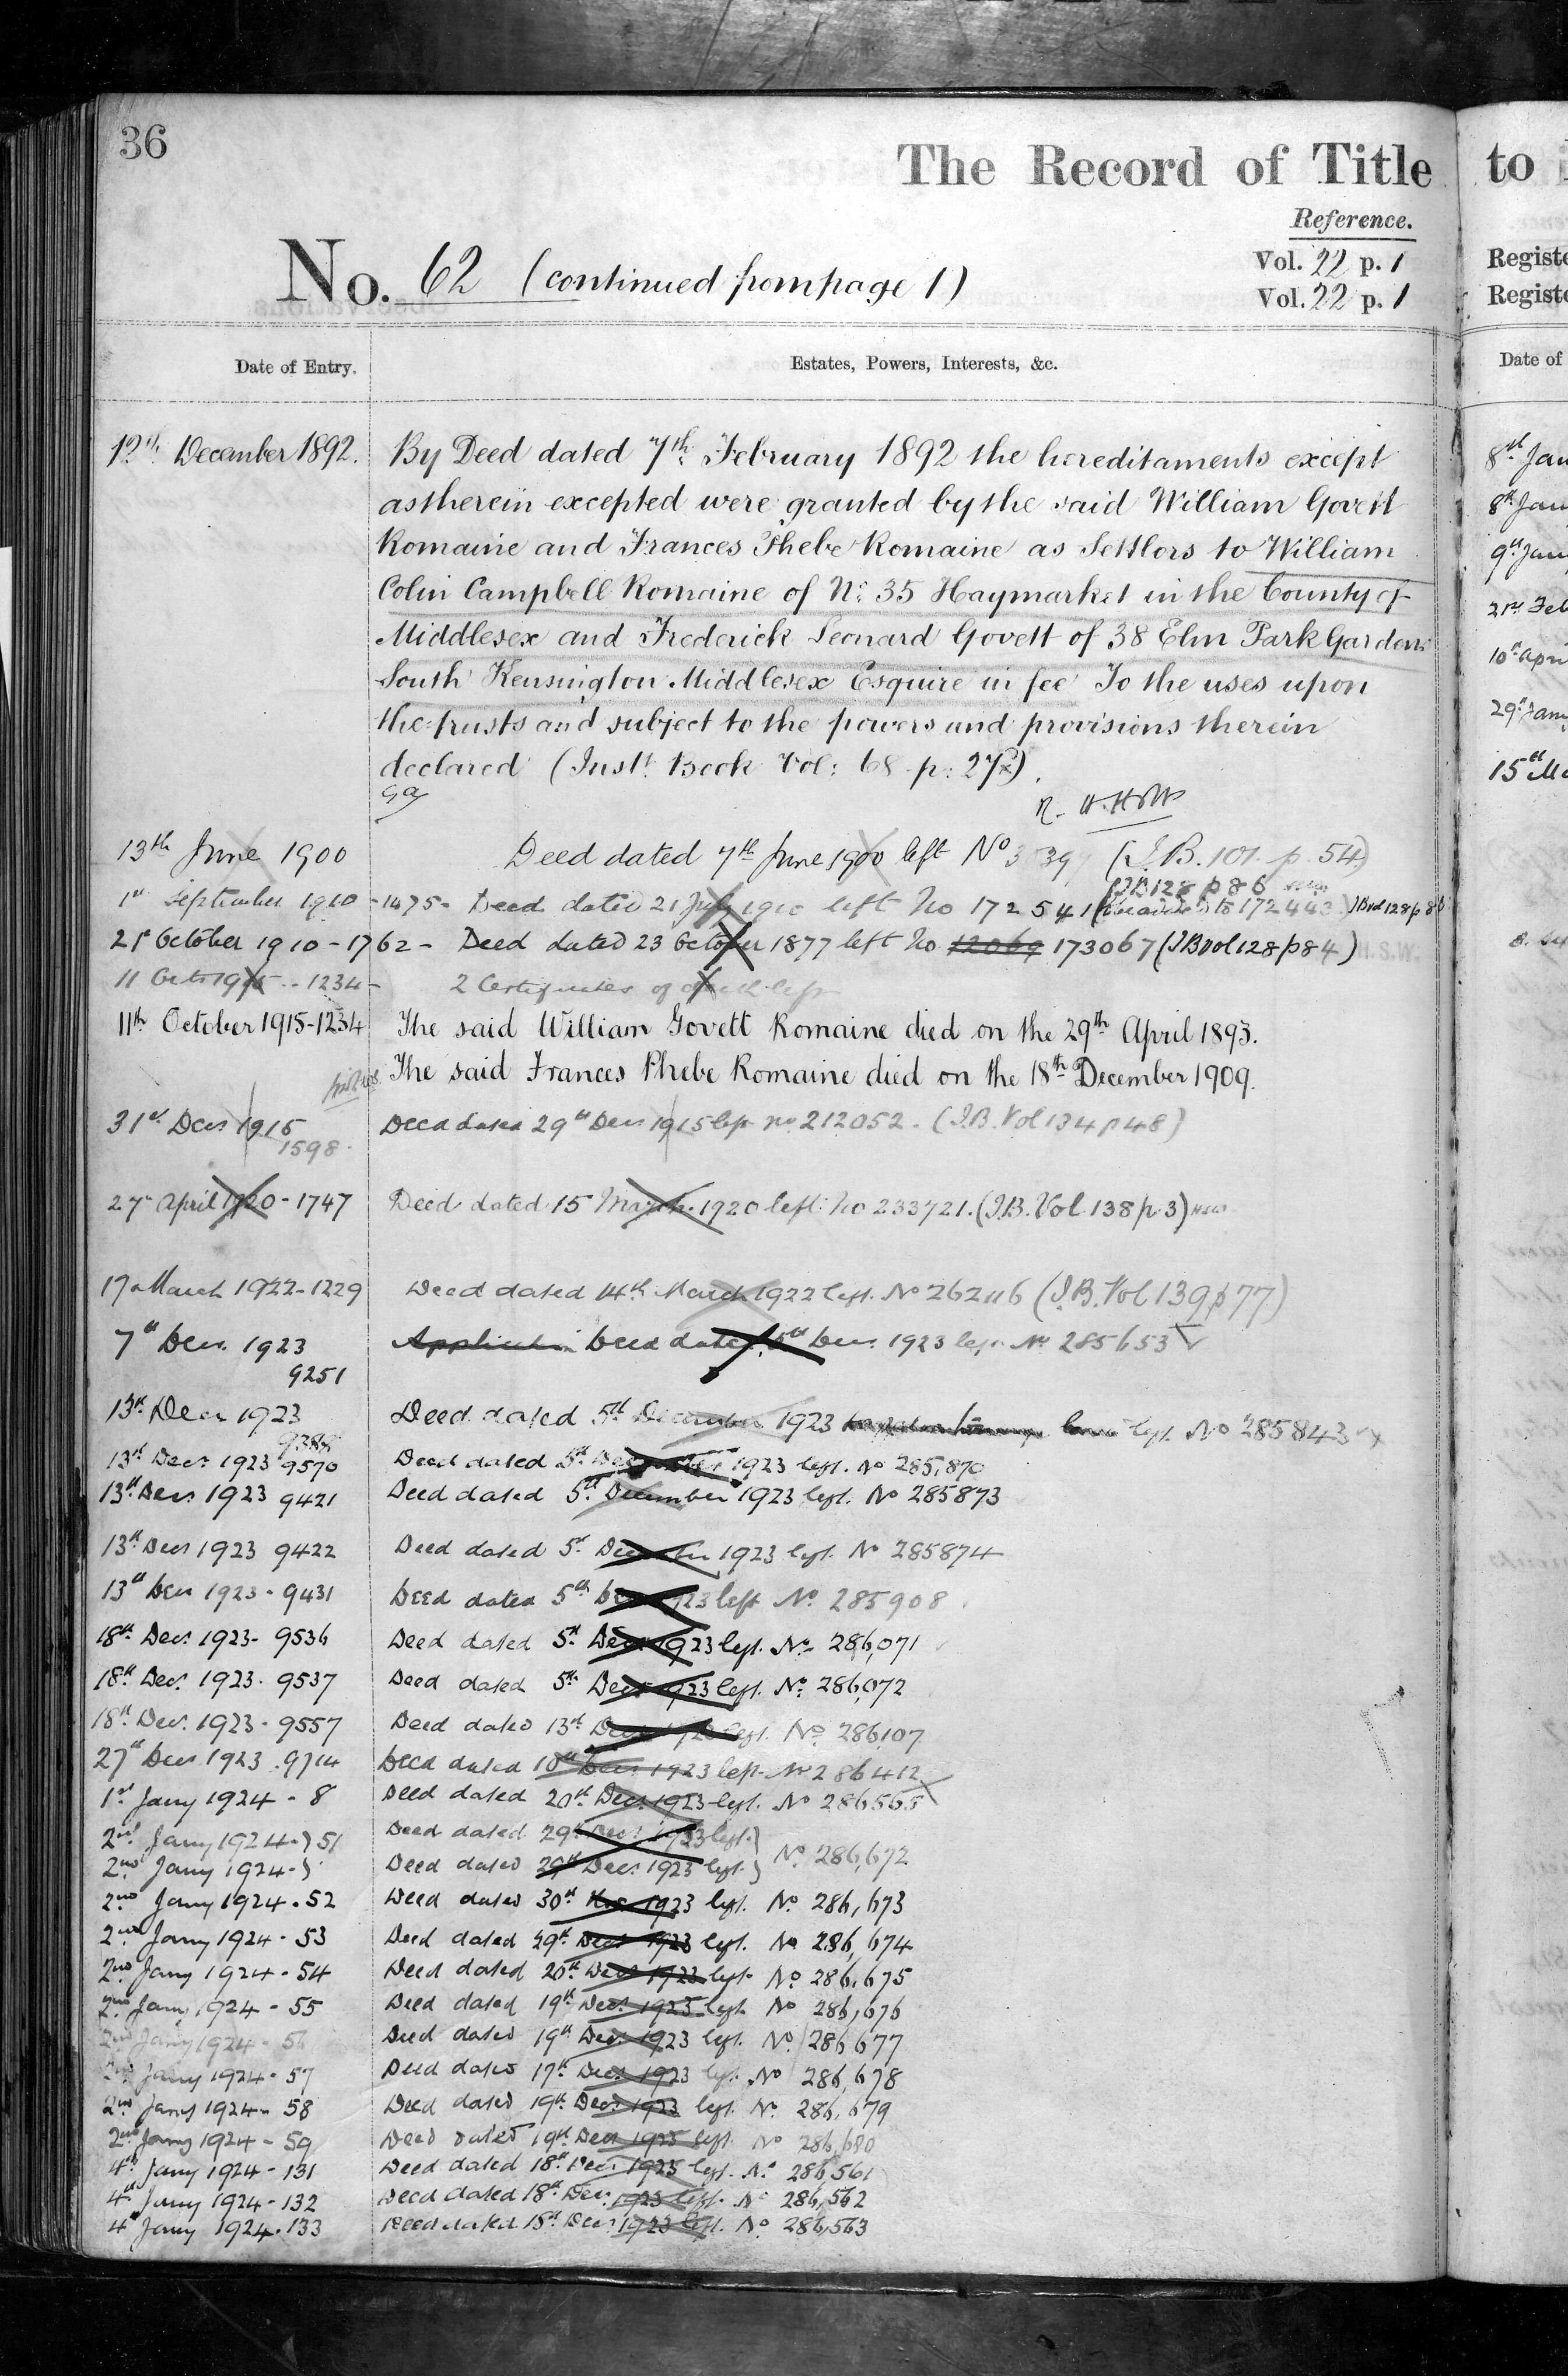 36
The Record of Title
Reference.
No. 62 (continued from page 1)
Vol. 22 p. 1
Vol. 22 p. 1
Date of Entry.
Estates, Powers, Interests, &c.
12th December 1892. By Deed dated 7th February 1892 the hereditaments except
as therein excepted were granted by the said William Govett
Romaine and Frances Phebe Romaine as Settlors to William
Colin Campbell Romaine of No. 35 Haymarket in the County of
Middlesex and Frederick Leonard Govett of 38 Elm Park Gardens
South Kensington Middlesex Esquire in fee To the uses upon
the trusts and subject to the powers and provisions therein
declared (Inst. Book Vol: 68 p:
13th June 1900 Deed dated 7th June 1900 left No (I.B. 101. p. 54)
I.B 128 p 86
1st September 1910 -1475- Deed dated 21 July 1910 left No 172541 to 172443
21st October 1910 - 1762 - Deed dated 23 October 1877 left No 12069 173067 (IB vol 128 p 84) H.S.W.
11 Octr 1915 - 1234 - 2 Certificates of death left
11th October 1915-1234 The said William Govett Romaine died on the 29th April 1893.
The said Frances Phebe Romaine died on the 18th December 1909.
31st Decr 1915 Deed dated 29th Decr 1915 left no 212052. (I.B. Vol 134 p 48)
1598
27th April 1920 - 1747 Deed dated 15 March 1920 left No 233721. (I.B. Vol 138 p. 3) HSW
17th March 1922-1229 Deed dated 14th March 1922 left. No 262116 (I.B. Vol 139 p 77)
7th Decr. 1923 Application Deed dated 5th Decr. 1923 left No 285653
9251
13th Decr 1923 Deed dated 5th December 1923 left. No 285843
9388
13th Decr 1923 9570 Deed dated 5th December 1923 left. No 285,870
13th Decr 1923 9421 Deed dated 5th December 1923 left. No 285873
13th Decr 1923 9422 Deed dated 5th December 1923 left. No 285874
13th Decr 1923 - 9431 Deed dated 5th Decr 1923 left No. 285908
18th Decr 1923 - 9536 Deed dated 5th Decr 1923 left. No. 286,071
18th Decr. 1923 - 9537 Deed dated 5th Decr 1923 left. No. 286,072
18th Decr. 1923 - 9557 Deed dated 13th Decr 1923 left. No. 286,107
27th Decr 1923 . 9714 Deed dated 10th Decr. 1923 left No 286412
1st Jany 1924 - 8 Deed dated 20th Decr. 1923 left. No 286565
2nd Jany 1924 - } 51 Deed dated 29th Decr 1923 left. }
2nd Jany 1924 - } Deed dated 29th Decr. 1923 left. } No. 286,672
2nd Jany 1924 . 52 Deed dated 30th Nov 1923 left. No. 286,673
2nd Jany 1924 - 53 Deed dated 29th Decr 1923 left. No 286,674
2nd Jany 1924 - 54 Deed dated 20th Decr 1923 left No. 286,675
2nd Jany 1924 - 55 Deed dated 19th Decr. 1923 left No 286,676
2nd Jany 1924 - 56 Deed dated 19th Decr. 1923 left. No. 286677
2nd Jany 1924 - 57 Deed dated 17th Decr. 1923 left. No 286,678
2nd Jany 1924 - 58 Deed dated 19th Decr. 1923 left. No. 286,679
2nd Jany 1924 - 59 Deed dated 19th Decr 1923 left. No 286,680
4th Jany 1924 - 131 Deed dated 18th Decr 1923 left. No 286,561
4th Jany 1924 - 132 Deed dated 18th Decr. 1923 left. No 286,562
4th Jany 1924 . 133 Deed dated 15th Decr 1923 left. No. 286,563
to
Registe
Registe
Date of
8th Jan
8th Jan
9th Jan
21st Feb
10th Apri
29th Jan
15th Ma